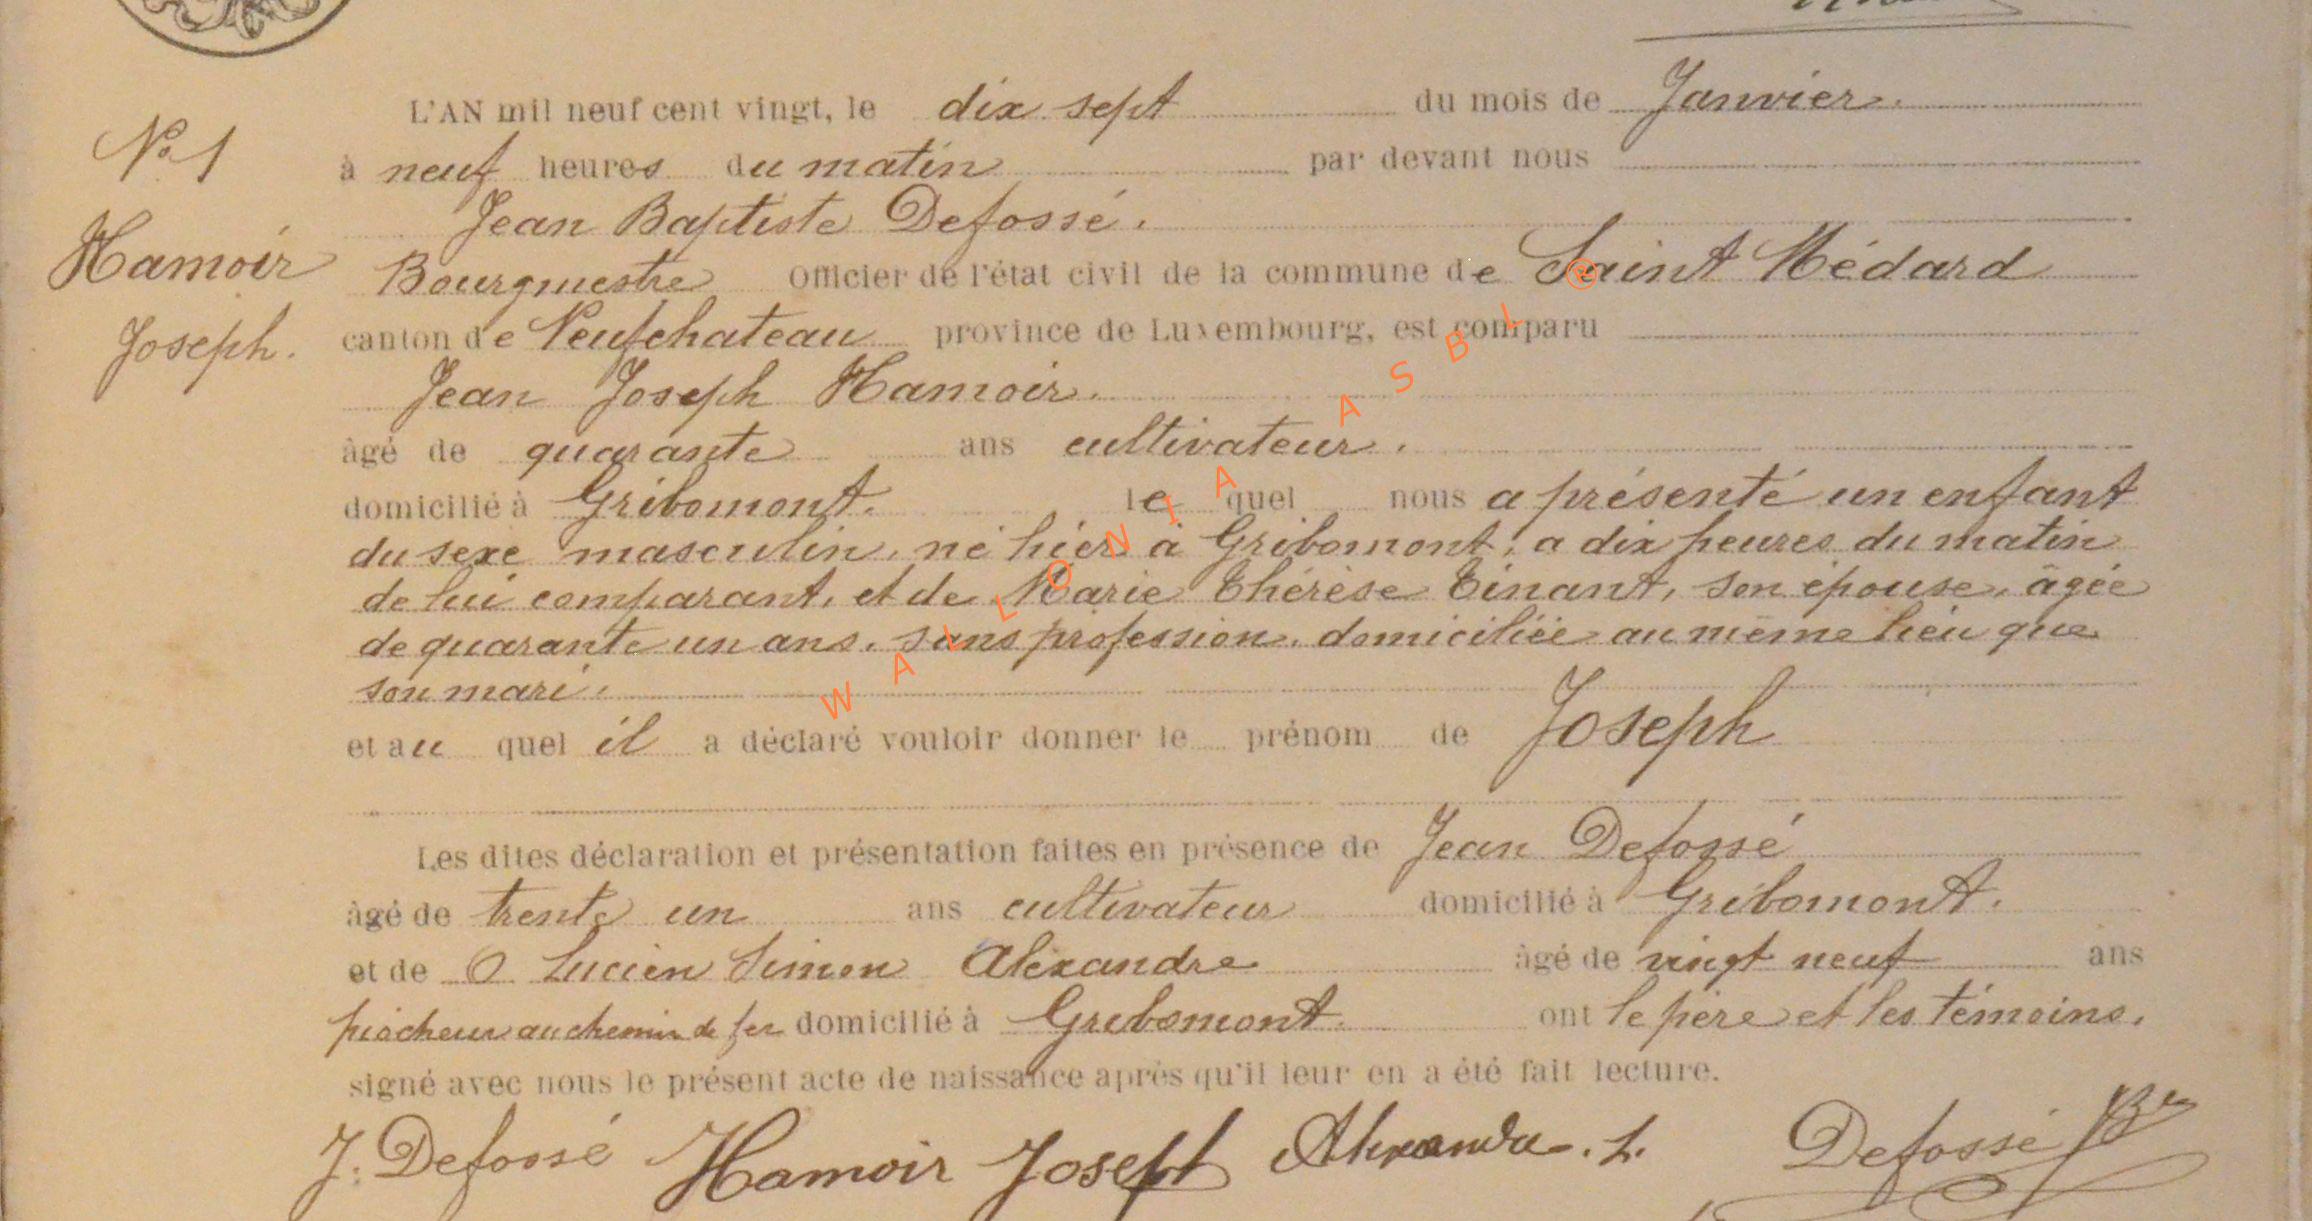 L'AN mil neuf cent vingt, le dix sept du mois de Janvier.
N° 1
à neuf heures du matin par devant nous
Jean Baptiste Defossé.
Hamoir
Bourgmestre Officier de l'état civil de la commune de Saint Médard
Joseph.
canton de Neufchateau province de Luxembourg, est comparu
Jean Joseph Hamoir.
âgé de quarante ans cultivateur.
domicilié à Gribomont. lequel nous a présenté un enfant
du sexe masculin, né hier à Gribomont, a dix heures du matin
de lui comparant, et de Marie Thérèse Tinant, son épouse, âgée
de quarante un ans, sans profession, domiciliée au même lieu que
son mari.
et au quel il a déclaré vouloir donner le prénom de Joseph
Les dites déclaration et présentation faites en présence de Jean Defossé
âgé de trente un ans cultivateur domicilié à Gribomont.
et de Lucien Simon Alexandre âgé de vingt neuf ans
piocheur au chemin de fer domicilié à Gribomont. ont le père et les témoins.
signé avec nous le présent acte de naissance après qu'il leur en a été fait lecture.
J. Defossé Hamoir Joseph Alexandre. L. Defossé
WALLONIA ASBL ®